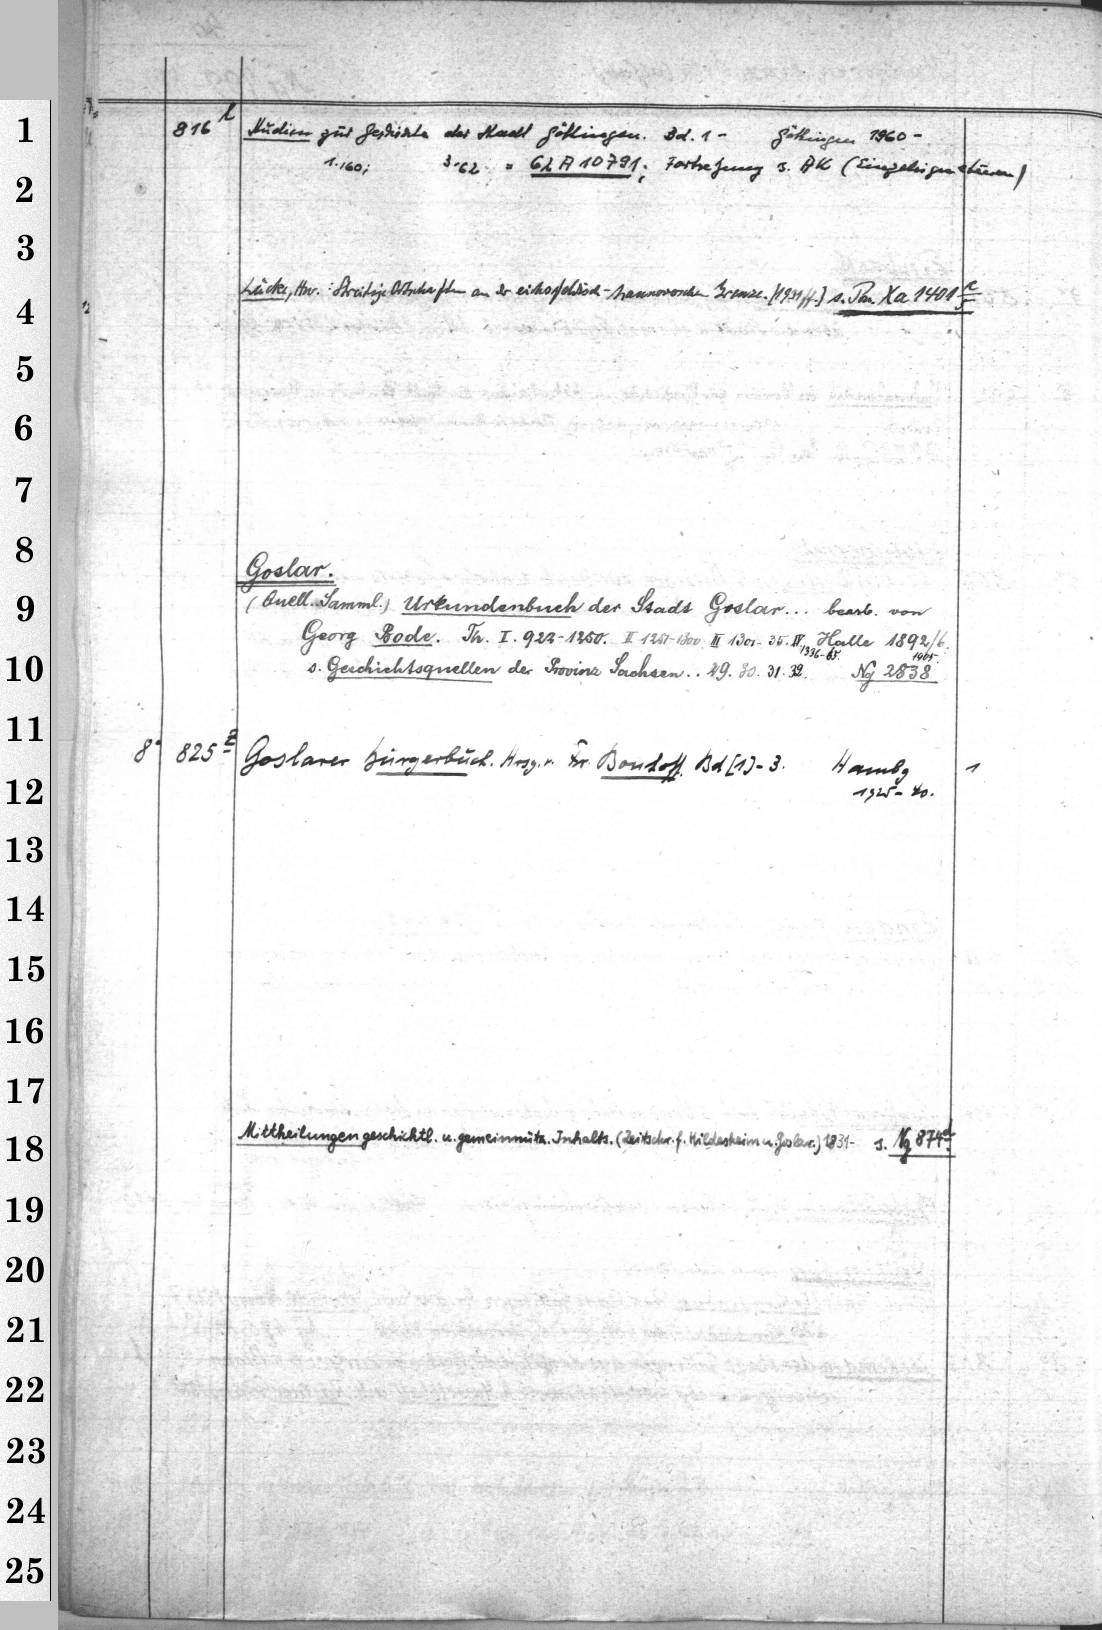 1
2
3
4
5
6
7
8
9
10
11
12
13
14
15
16
17
18
19
20
21
22
23
24
25
816 l Studien zur Geschichte der Stadt Göttingen. Bd. 1 - Göttingen 1960 -
1.'60; 3.'62 = 62 A 10791; Fortsetzung s. AK (Einzelsignaturen)
Lücke, Hnr.: Streitige Ortschaften an der eichsfeldisch-hannoverschen Grenze. [1931ff.] s. Xa 1401
Goslar.
(Quell. Samml.) Urkundenbuch der Stadt Goslar... bearb. von
Georg Bode. Th. I. 922-1250. II 1251-1300 III 1301-35. IV 1336-65. Halle 1892/6
s. Geschichtsquellen der Provinz Sachsen.. 29. 30. 31. 32. Ng 2838
8° 825 Goslarer Bürgerbuch. Hrsg. v. Fr. Bonhoff. Bd [1]-3. Hambg 1
1925-40.
Mittheilungen geschichtl. u. gemeinnütz. Inhalts. (Zeitschr. f. Hildesheim u. Goslar.) 1831- s. Ng 874